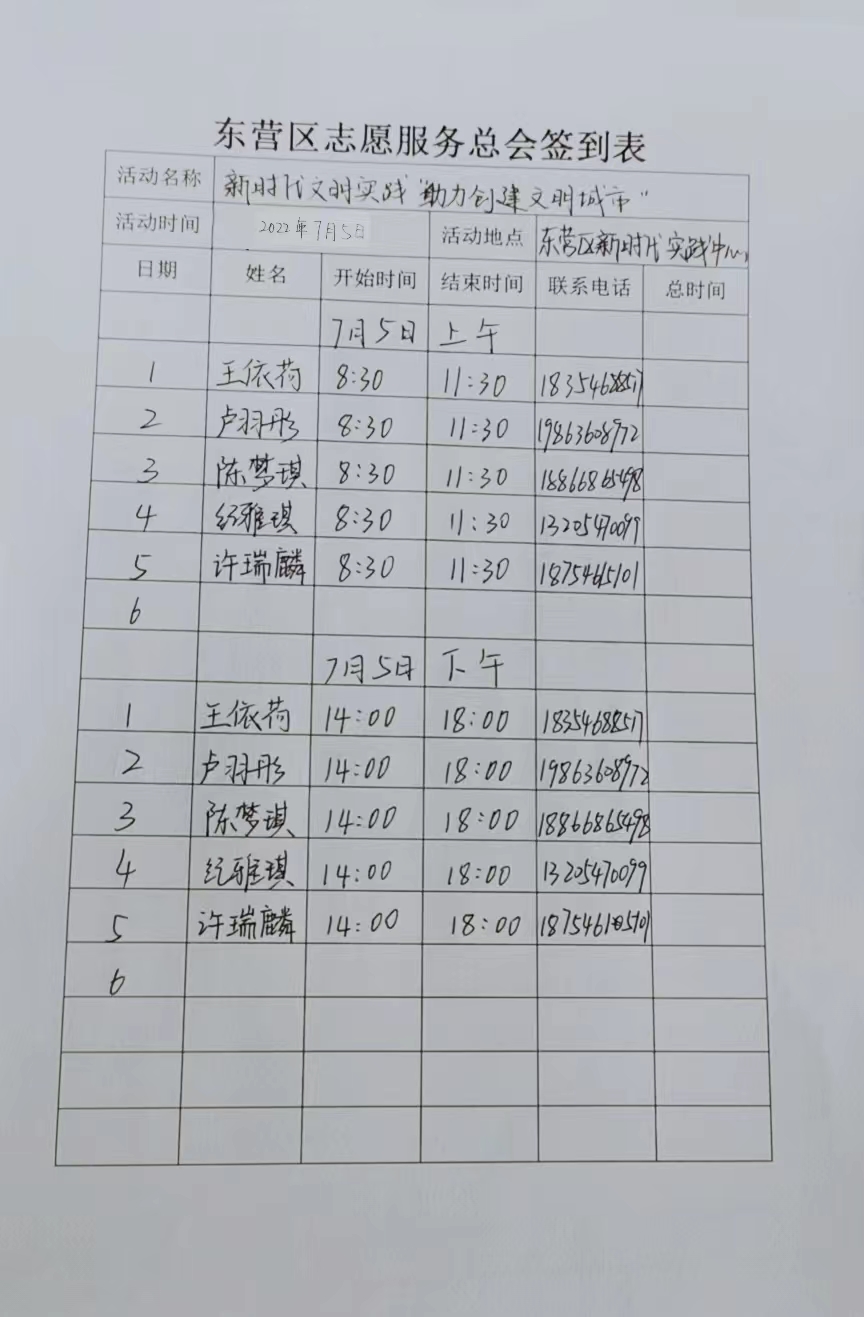 东营区志愿服务总会签到表
活动名称 新时代文明实践"助力创建文明城市"
活动时间 2022年7月5日 活动地点 东营区新时代实践中心
日期 姓名 开始时间 结束时间 联系电话 总时间
7月5日 上午
1 王依荷 8:30 11:30 18354688517
2 卢羽彤 8:30 11:30 19863608972
3 陈梦琪 8:30 11:30 18866865498
4 纪雅琪 8:30 11:30 13205470099
5 许瑞麟 8:30 11:30
6
7月5日 下午
1 王依荷 14:00 18:00 18354688517
2 卢羽彤 14:00 18:00 19863608972
3 陈梦琪 14:00 18:00 18866865498
4 纪雅琪 14:00 18:00 13205470099
5 许瑞麟 14:00 18:00
6